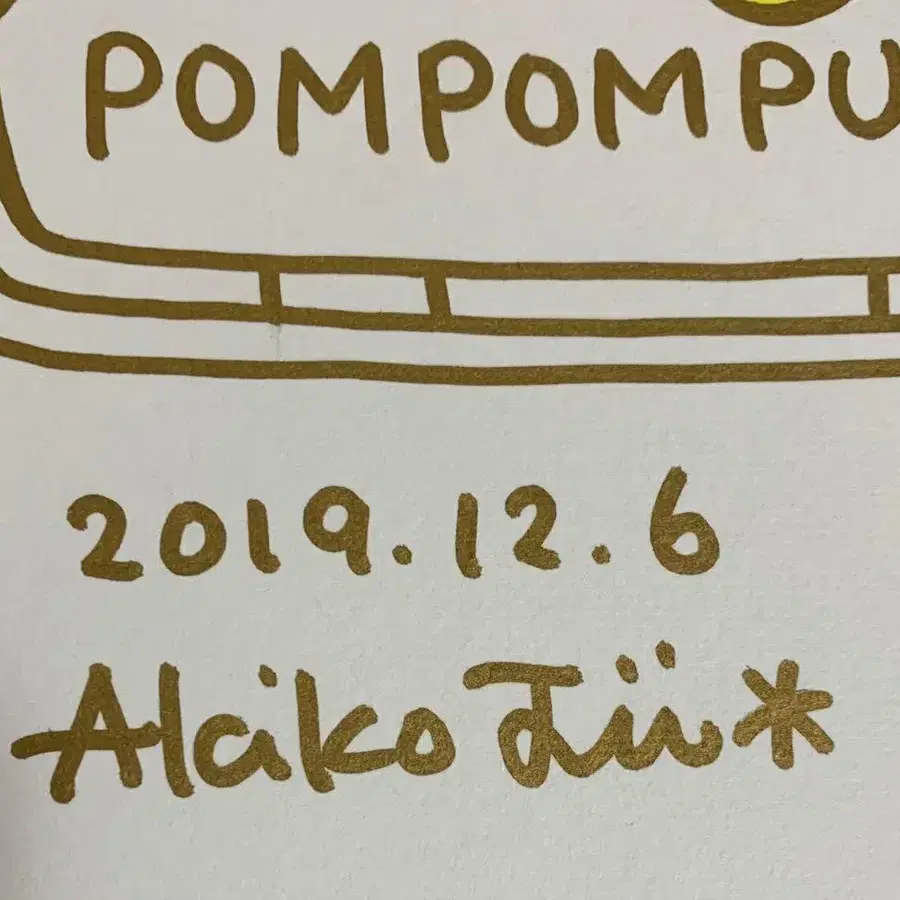 POMPOMPU
2019.12.6
Akiko Jii*